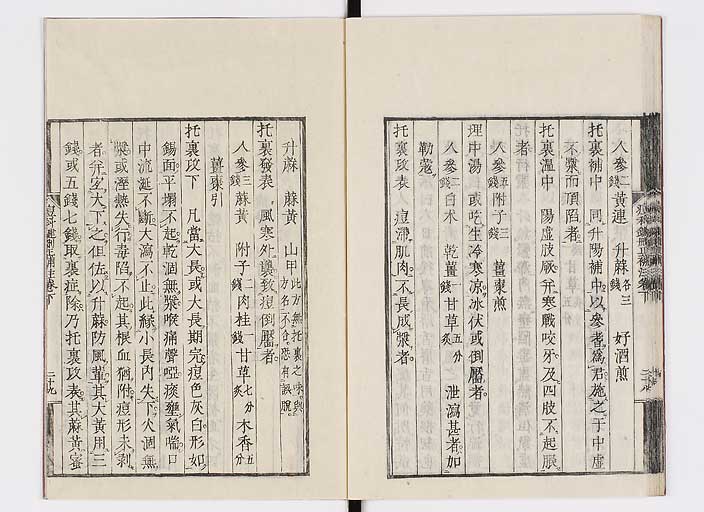 人參二錢 黃連 升麻各三錢 好酒煎
托裏補中 同升陽補中以參耆為君施之于中虛
不漿而頂陷者
托裏溫中 陽虛肢厥并寒戰咬牙及四肢不起脹
者
人參五錢 附子三錢 薑棗煎
理中湯 或吃生冷寒涼冰伏或倒靨者
人參二錢 白朮 乾薑一錢 甘草五分炙 泄瀉甚者加
勒蔻
托裏攻表 人 痘滯肌肉不長成漿者
升蔴 蔴黃 山甲 此方無托裏之味與方名不合恐有誤脫
托裏發表 風寒外襲致痘倒靨者
人參三錢 蔴黃 附子二錢 肉桂一錢 甘草七分炙 木香五分
薑棗引
托裏攻下 凡當大長或大長期完痘色灰白形如
錫面平塌不起乾涸無漿喉痛聲啞痰壅氣喘口
中流涎不斷大瀉不止此緣小長內失下火涸無
漿或溼熱失行毒陷不起其根血猶附痘形未剥
者并宜大下之但佐以升蔴防風葷其大黃用三
錢或五錢七錢取裏症除乃托裏攻表其蔴黃蜜
痘科鍵刪正補註卷下
二十九